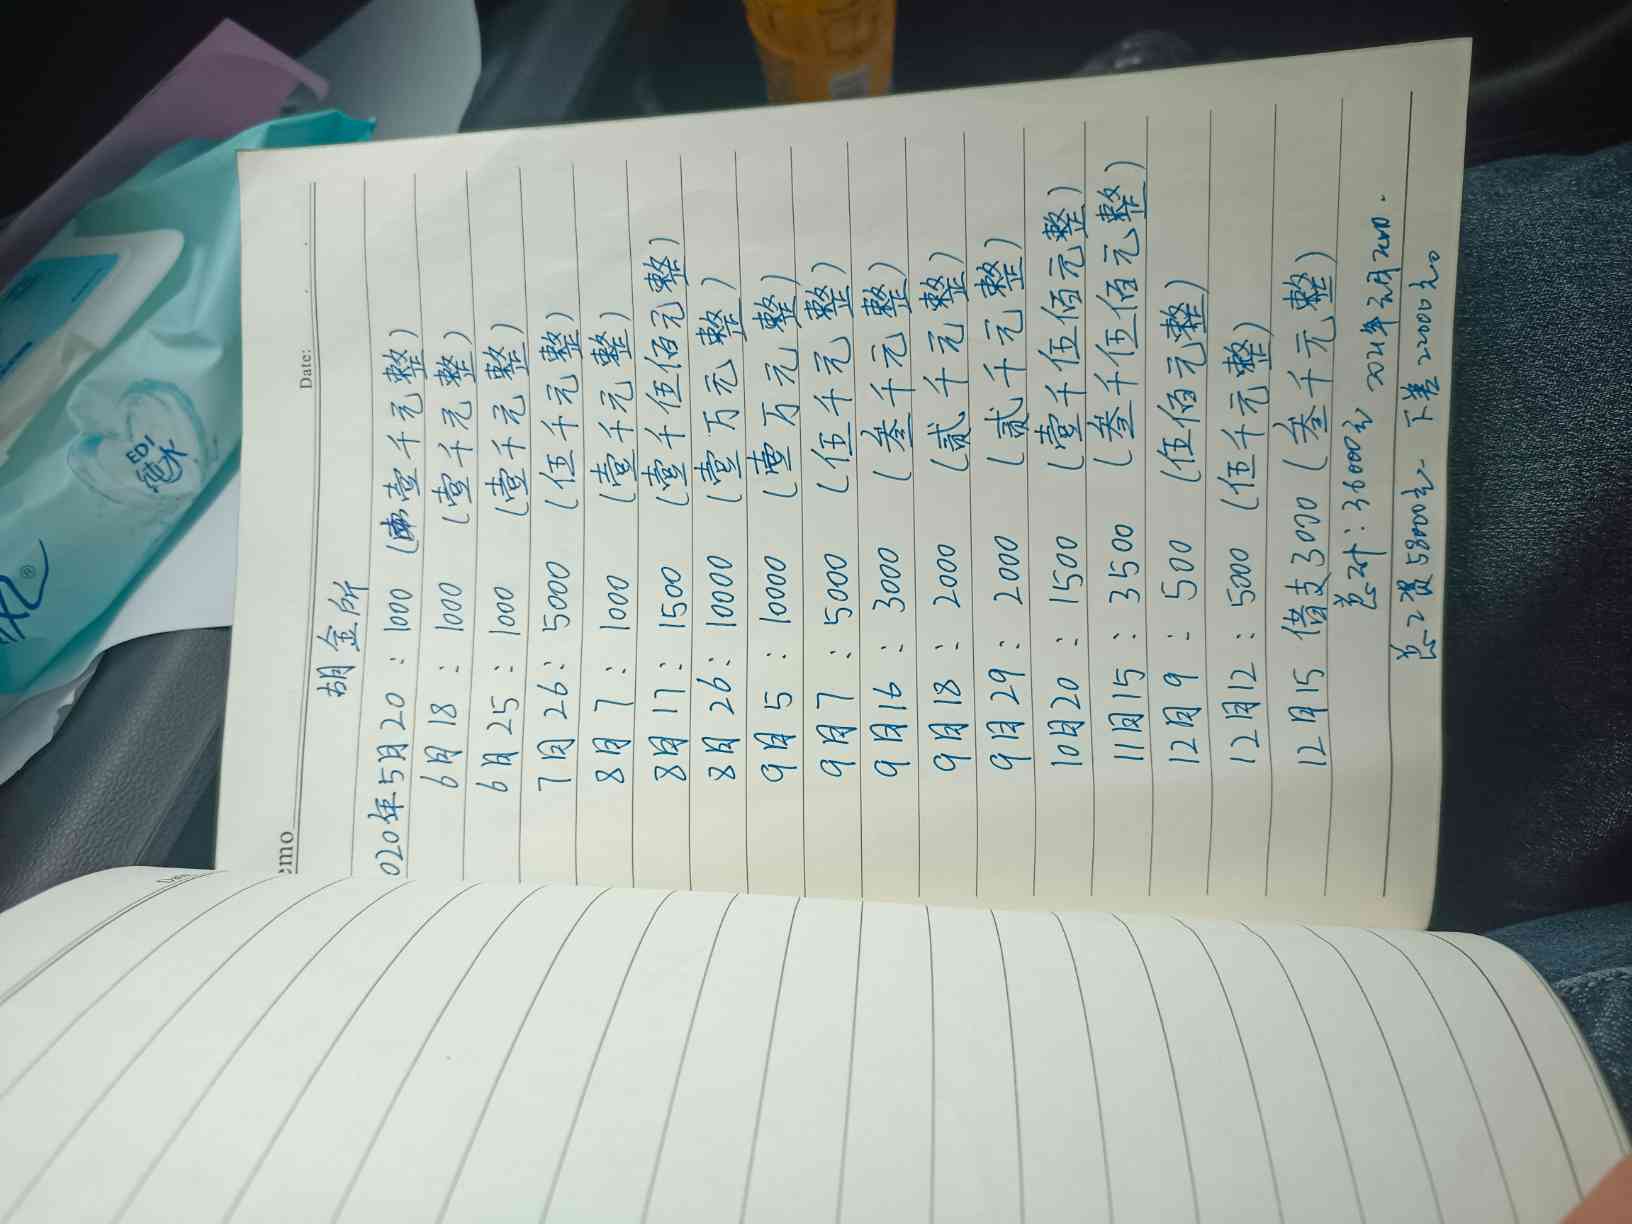 emo
Date:
胡金所
020年5月20：1000（壹千元整）
6月18：1000（壹千元整）
6月25：1000（壹千元整）
7月26：5000（伍千元整）
8月7：1000（壹千元整）
8月17：1500（壹千伍佰元整）
8月26：10000（壹万元整）
9月5：10000（壹万元整）
9月7：5000（伍千元整）
9月16：3000（叁千元整）
9月18：2000（贰千元整）
9月29：2000（贰千元整）
10月20：1500（壹千伍佰元整）
11月15：3500（叁千伍佰元整）
12月9：500（伍佰元整）
12月12：5000（伍千元整）
12月15借支3000（叁千元整）
总计：36000元 2021年元月
总工资58000元 下差22000元。
EDI
纯水